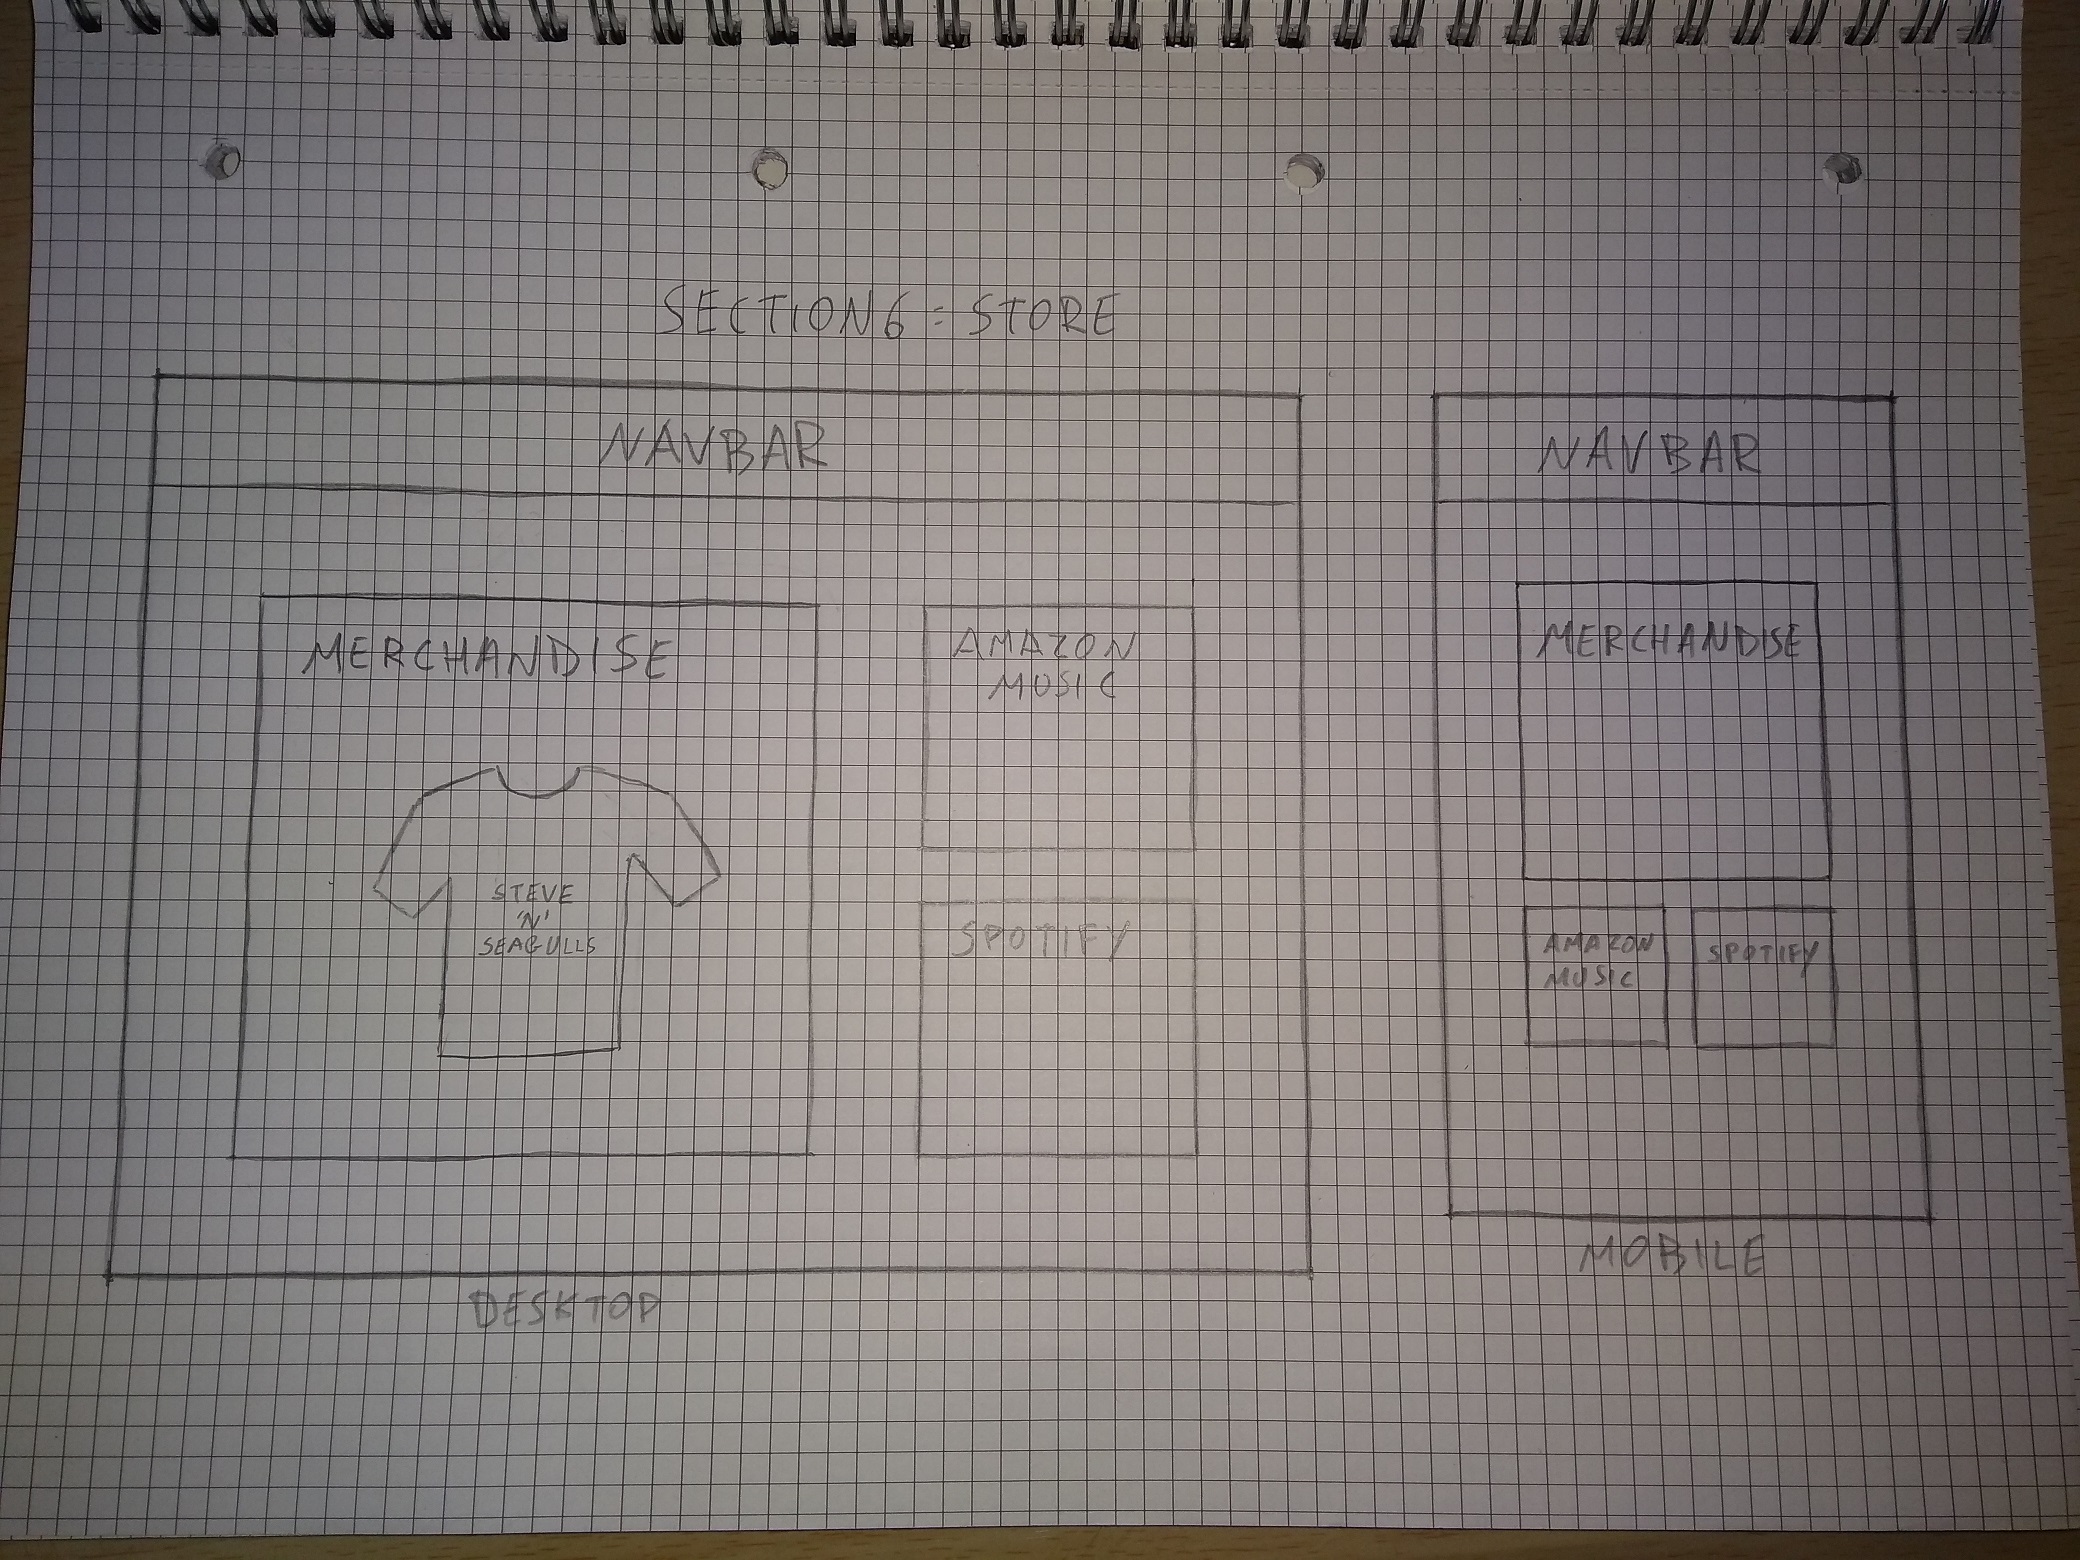 SECTION 6 = STORE
NAVBAR
MERCHANDISE
STEVE
'N'
SEAGULLS
AMAZON
MUSIC
SPOTIFY
DESKTOP
NAVBAR
MERCHANDISE
AMAZON
MUSIC
SPOTIFY
MOBILE